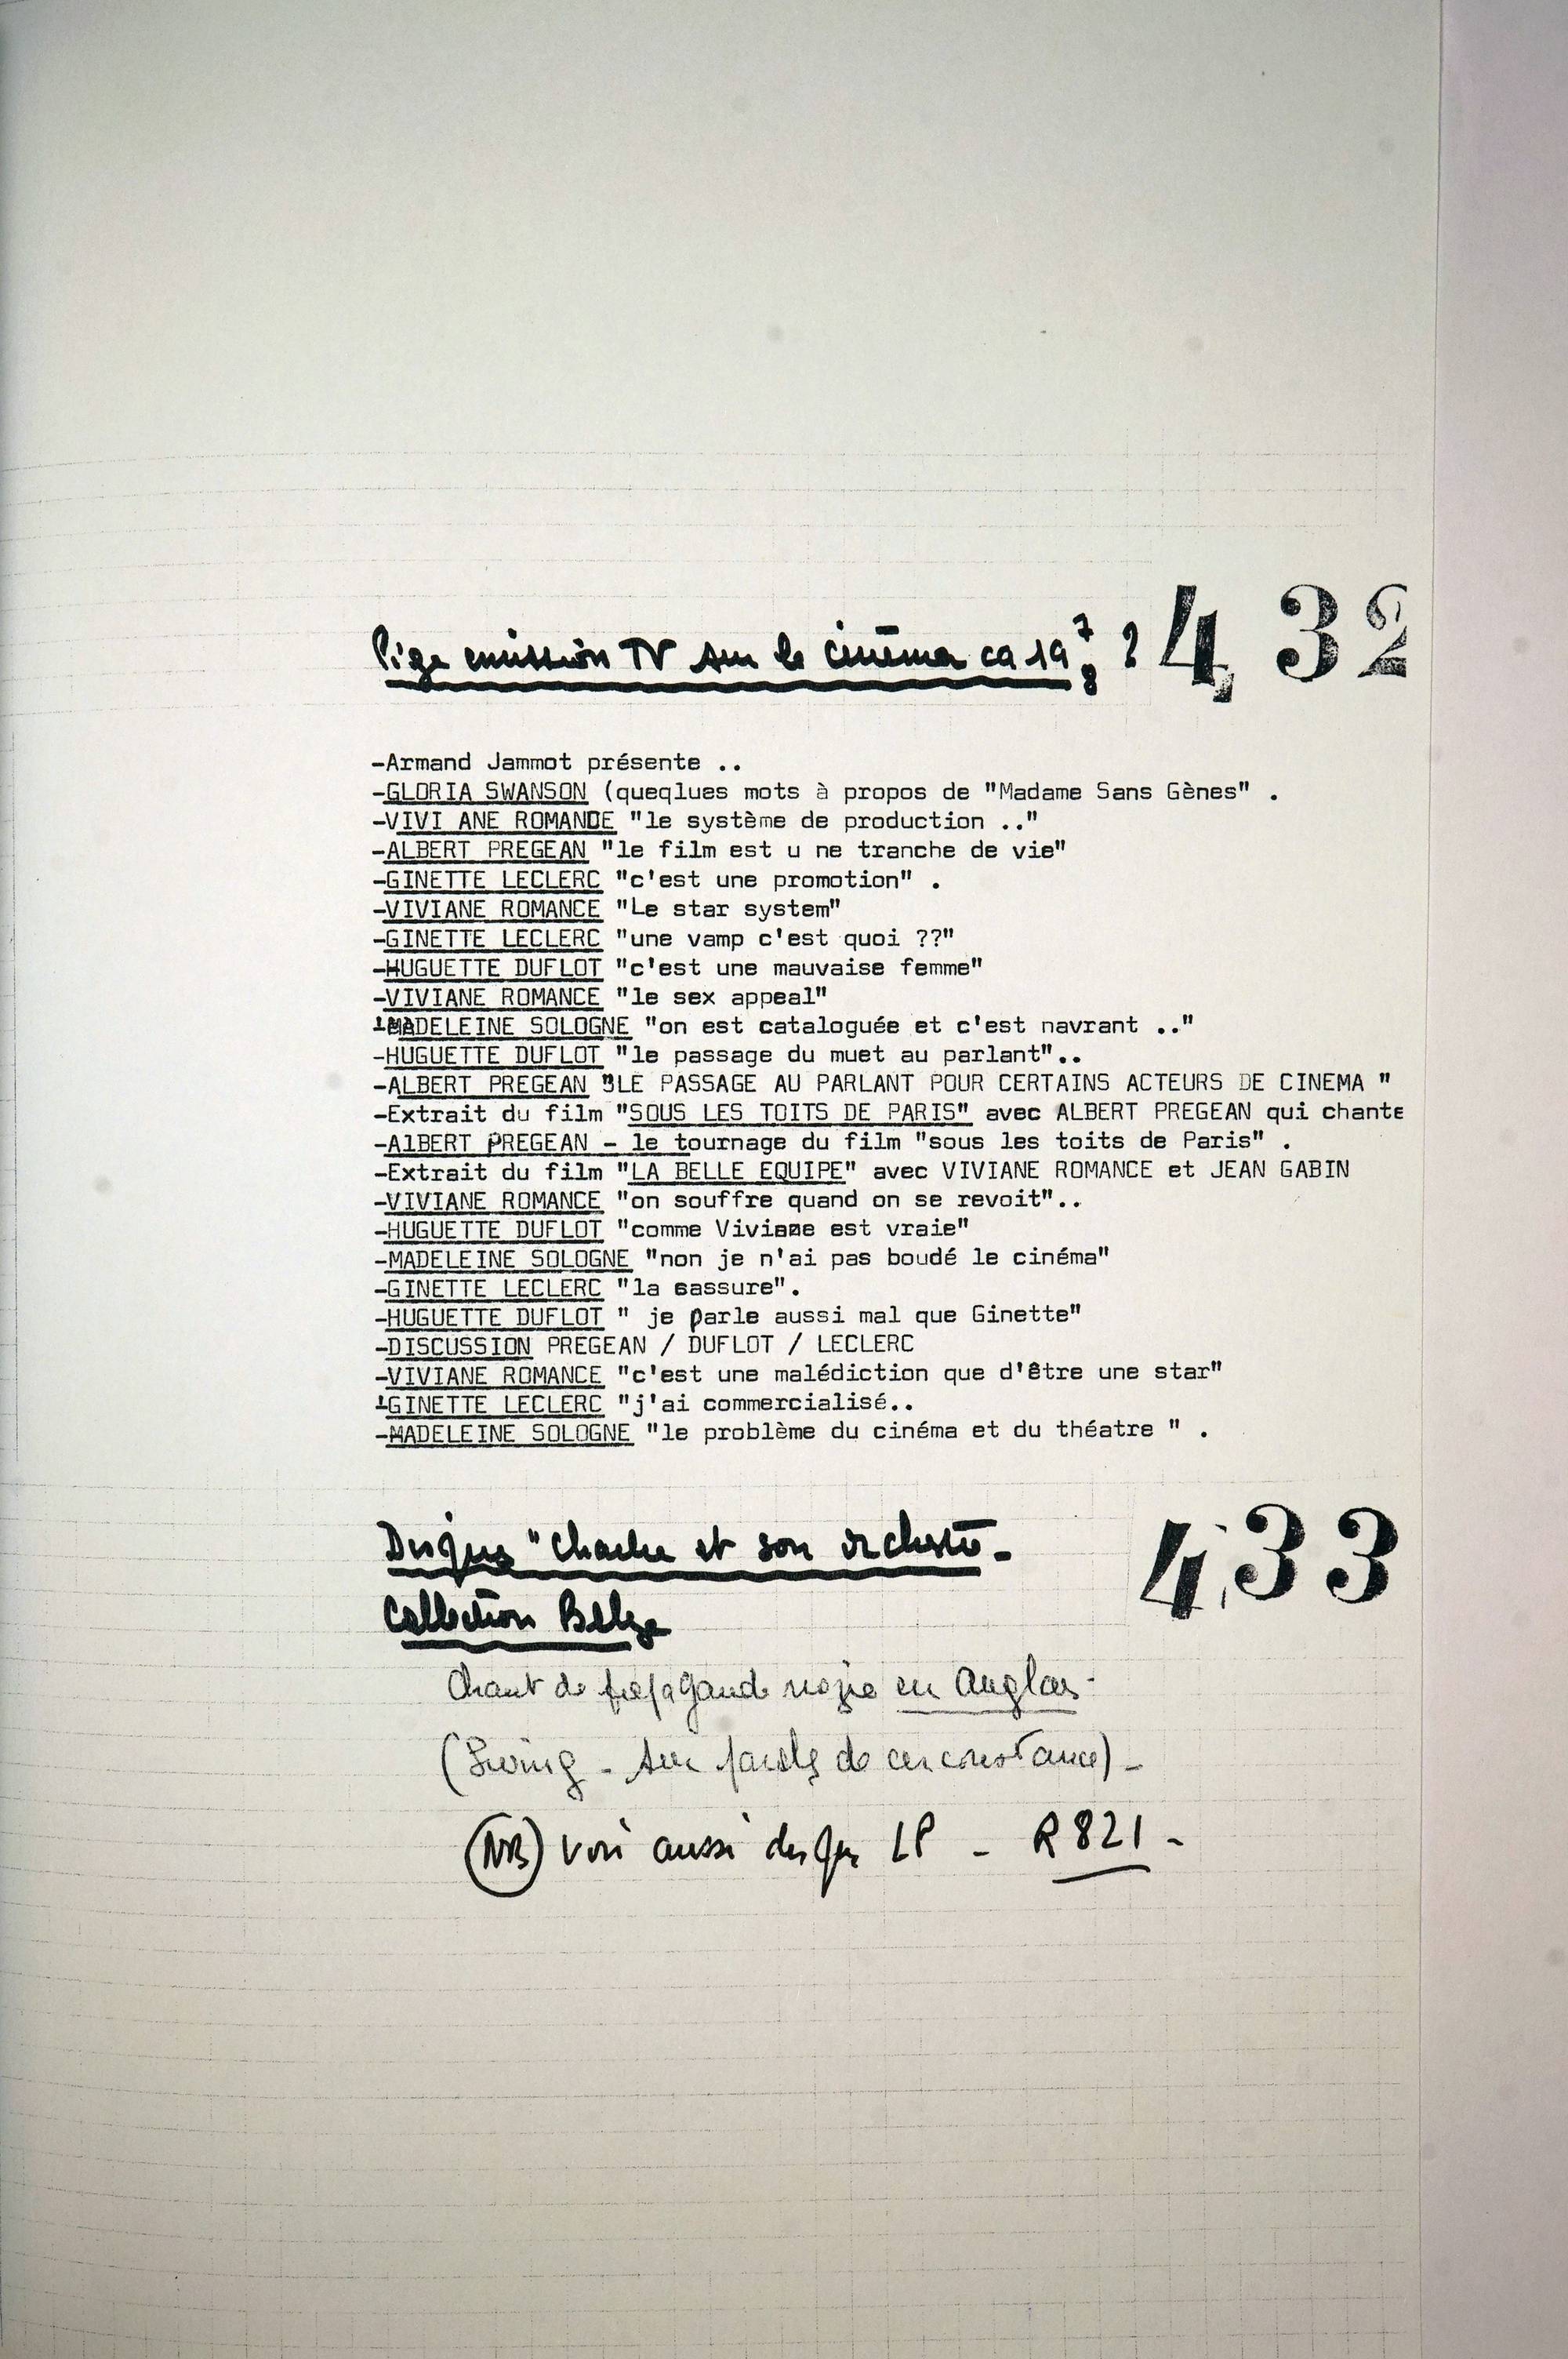 Pige emission TV sur le cinéma ca 19 7 8 ? 4,32
-Armand Jammot présente ..
-GLORIA SWANSON (queqlues mots à propos de "Madame Sans Gènes" .
-VIVI ANE ROMANCE "le système de production .."
-ALBERT PREGEAN "le film est u ne tranche de vie"
-GINETTE LECLERC "c'est une promotion" .
-VIVIANE ROMANCE "Le star system"
-GINETTE LECLERC "une vamp c'est quoi ??"
-HUGUETTE DUFLOT "c'est une mauvaise femme"
-VIVIANE ROMANCE "le sex appeal"
-MADELEINE SOLOGNE "on est cataloguée et c'est navrant .."
-HUGUETTE DUFLOT "le passage du muet au parlant"..
-ALBERT PREGEAN "LE PASSAGE AU PARLANT POUR CERTAINS ACTEURS DE CINEMA "
-Extrait du film "SOUS LES TOITS DE PARIS" avec ALBERT PREGEAN qui chante
-AlBERT PREGEAN - le tournage du film "sous les toits de Paris" .
-Extrait du film "LA BELLE EQUIPE" avec VIVIANE ROMANCE et JEAN GABIN
-VIVIANE ROMANCE "on souffre quand on se revoit"..
-HUGUETTE DUFLOT "comme Viviane est vraie"
-MADELEINE SOLOGNE "non je n'ai pas boudé le cinéma"
-GINETTE LECLERC "la cassure".
-HUGUETTE DUFLOT " je parle aussi mal que Ginette"
-DISCUSSION PREGEAN / DUFLOT / LECLERC
-VIVIANE ROMANCE "c'est une malédiction que d'être une star"
-GINETTE LECLERC "j'ai commercialisé..
-MADELEINE SOLOGNE "le problème du cinéma et du théatre " .
Disques "Charlie et son orchestre - 4,33
Collection Belge
Chant de propagande nazie en Anglais -
(Swing - sur paroles de circonstance) -
(NB) Voir aussi disques LP - R821 -